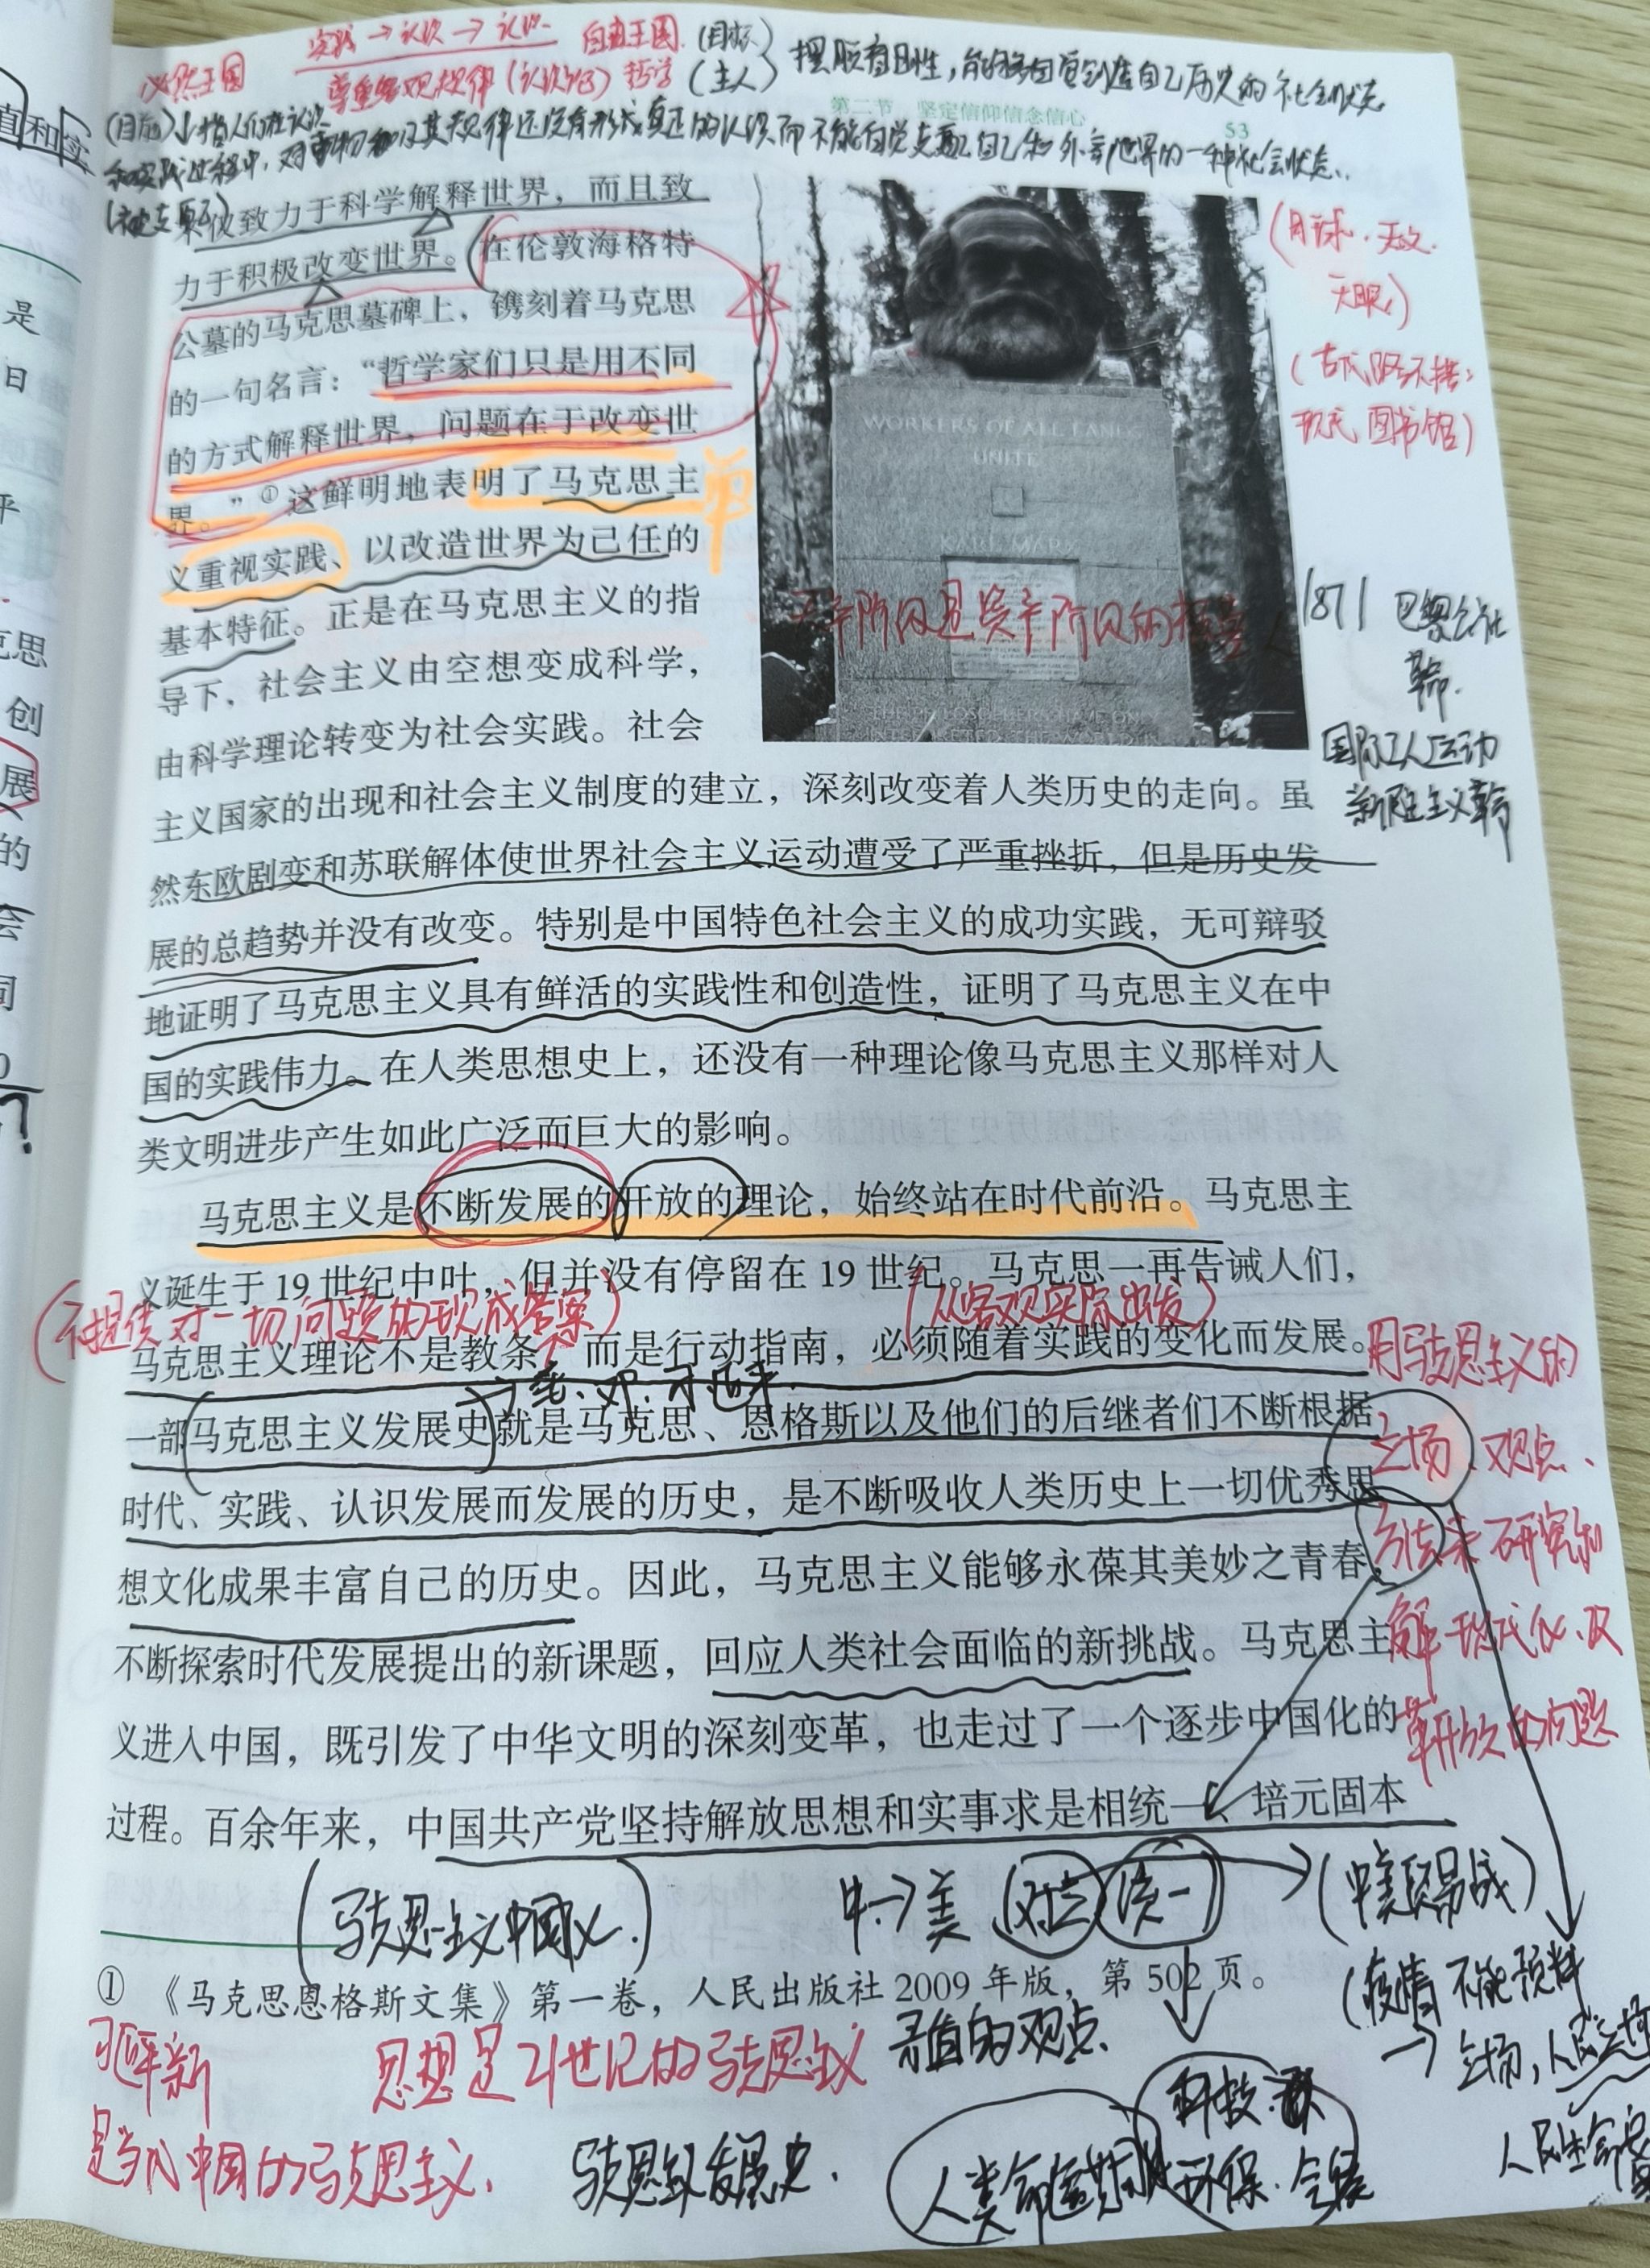 实践→认识→认识 自由王国.(目标)
必然王国 尊重客观规律(认识论)哲学 (主人) 摆脱盲目性,能够自觉创造自己历史的社会状态
第二节 坚定信仰信念信心 53
(目前)↓指人们在认识
和实践过程中,对事物及其规律还没有形成真正的认识而不能自觉支配自己和外部世界的一种社会状态.
(被支配)
仅致力于科学解释世界,而且致
力于积极改变世界。在伦敦海格特
公墓的马克思墓碑上,镌刻着马克思
的一句名言:“哲学家们只是用不同
的方式解释世界,问题在于改变世
界。”①这鲜明地表明了马克思主
义重视实践、以改造世界为己任的
基本特征。正是在马克思主义的指
导下,社会主义由空想变成科学,
由科学理论转变为社会实践。社会
主义国家的出现和社会主义制度的建立,深刻改变着人类历史的走向。虽
然东欧剧变和苏联解体使世界社会主义运动遭受了严重挫折,但是历史发
展的总趋势并没有改变。特别是中国特色社会主义的成功实践,无可辩驳
地证明了马克思主义具有鲜活的实践性和创造性,证明了马克思主义在中
国的实践伟力。在人类思想史上,还没有一种理论像马克思主义那样对人
类文明进步产生如此广泛而巨大的影响。
马克思主义是不断发展的开放的理论,始终站在时代前沿。马克思主
义诞生于19世纪中叶,但并没有停留在19世纪。马克思一再告诫人们,
(不提供对一切问题的现成答案) (从客观实际出发)
马克思主义理论不是教条,而是行动指南,必须随着实践的变化而发展。
一部马克思主义发展史就是马克思、恩格斯以及他们的后继者们不断根据
时代、实践、认识发展而发展的历史,是不断吸收人类历史上一切优秀思
想文化成果丰富自己的历史。因此,马克思主义能够永葆其美妙之青春,
不断探索时代发展提出的新课题,回应人类社会面临的新挑战。马克思主
义进入中国,既引发了中华文明的深刻变革,也走过了一个逐步中国化的
过程。百余年来,中国共产党坚持解放思想和实事求是相统一、培元固本
(马克思主义中国化.) 中→美 对立 统一→(中美贸易战)
① 《马克思恩格斯文集》第一卷,人民出版社2009年版,第502页。
(疫情 不能预料
→立场,人民立场
矛盾的观点.
科技
环保.气候
人类命运共同体
人民生命安
习近平新 思想是21世纪的马克思主义
是当代中国的马克思主义. 马克思主义发展史.
WORKERS OF ALL LANDS
UNITE
KARL MARX
(月球.天文.
天眼)
现代图书馆)
无产阶级是资产阶级的
1871 巴黎公社
革命.
国际工人运动
新民主主义革命
用马克思主义的
立场.观点、
方法来研究和
解 现代化.及
革开放的问题
直和实
是
日
平
克思
创
展
的
会
同